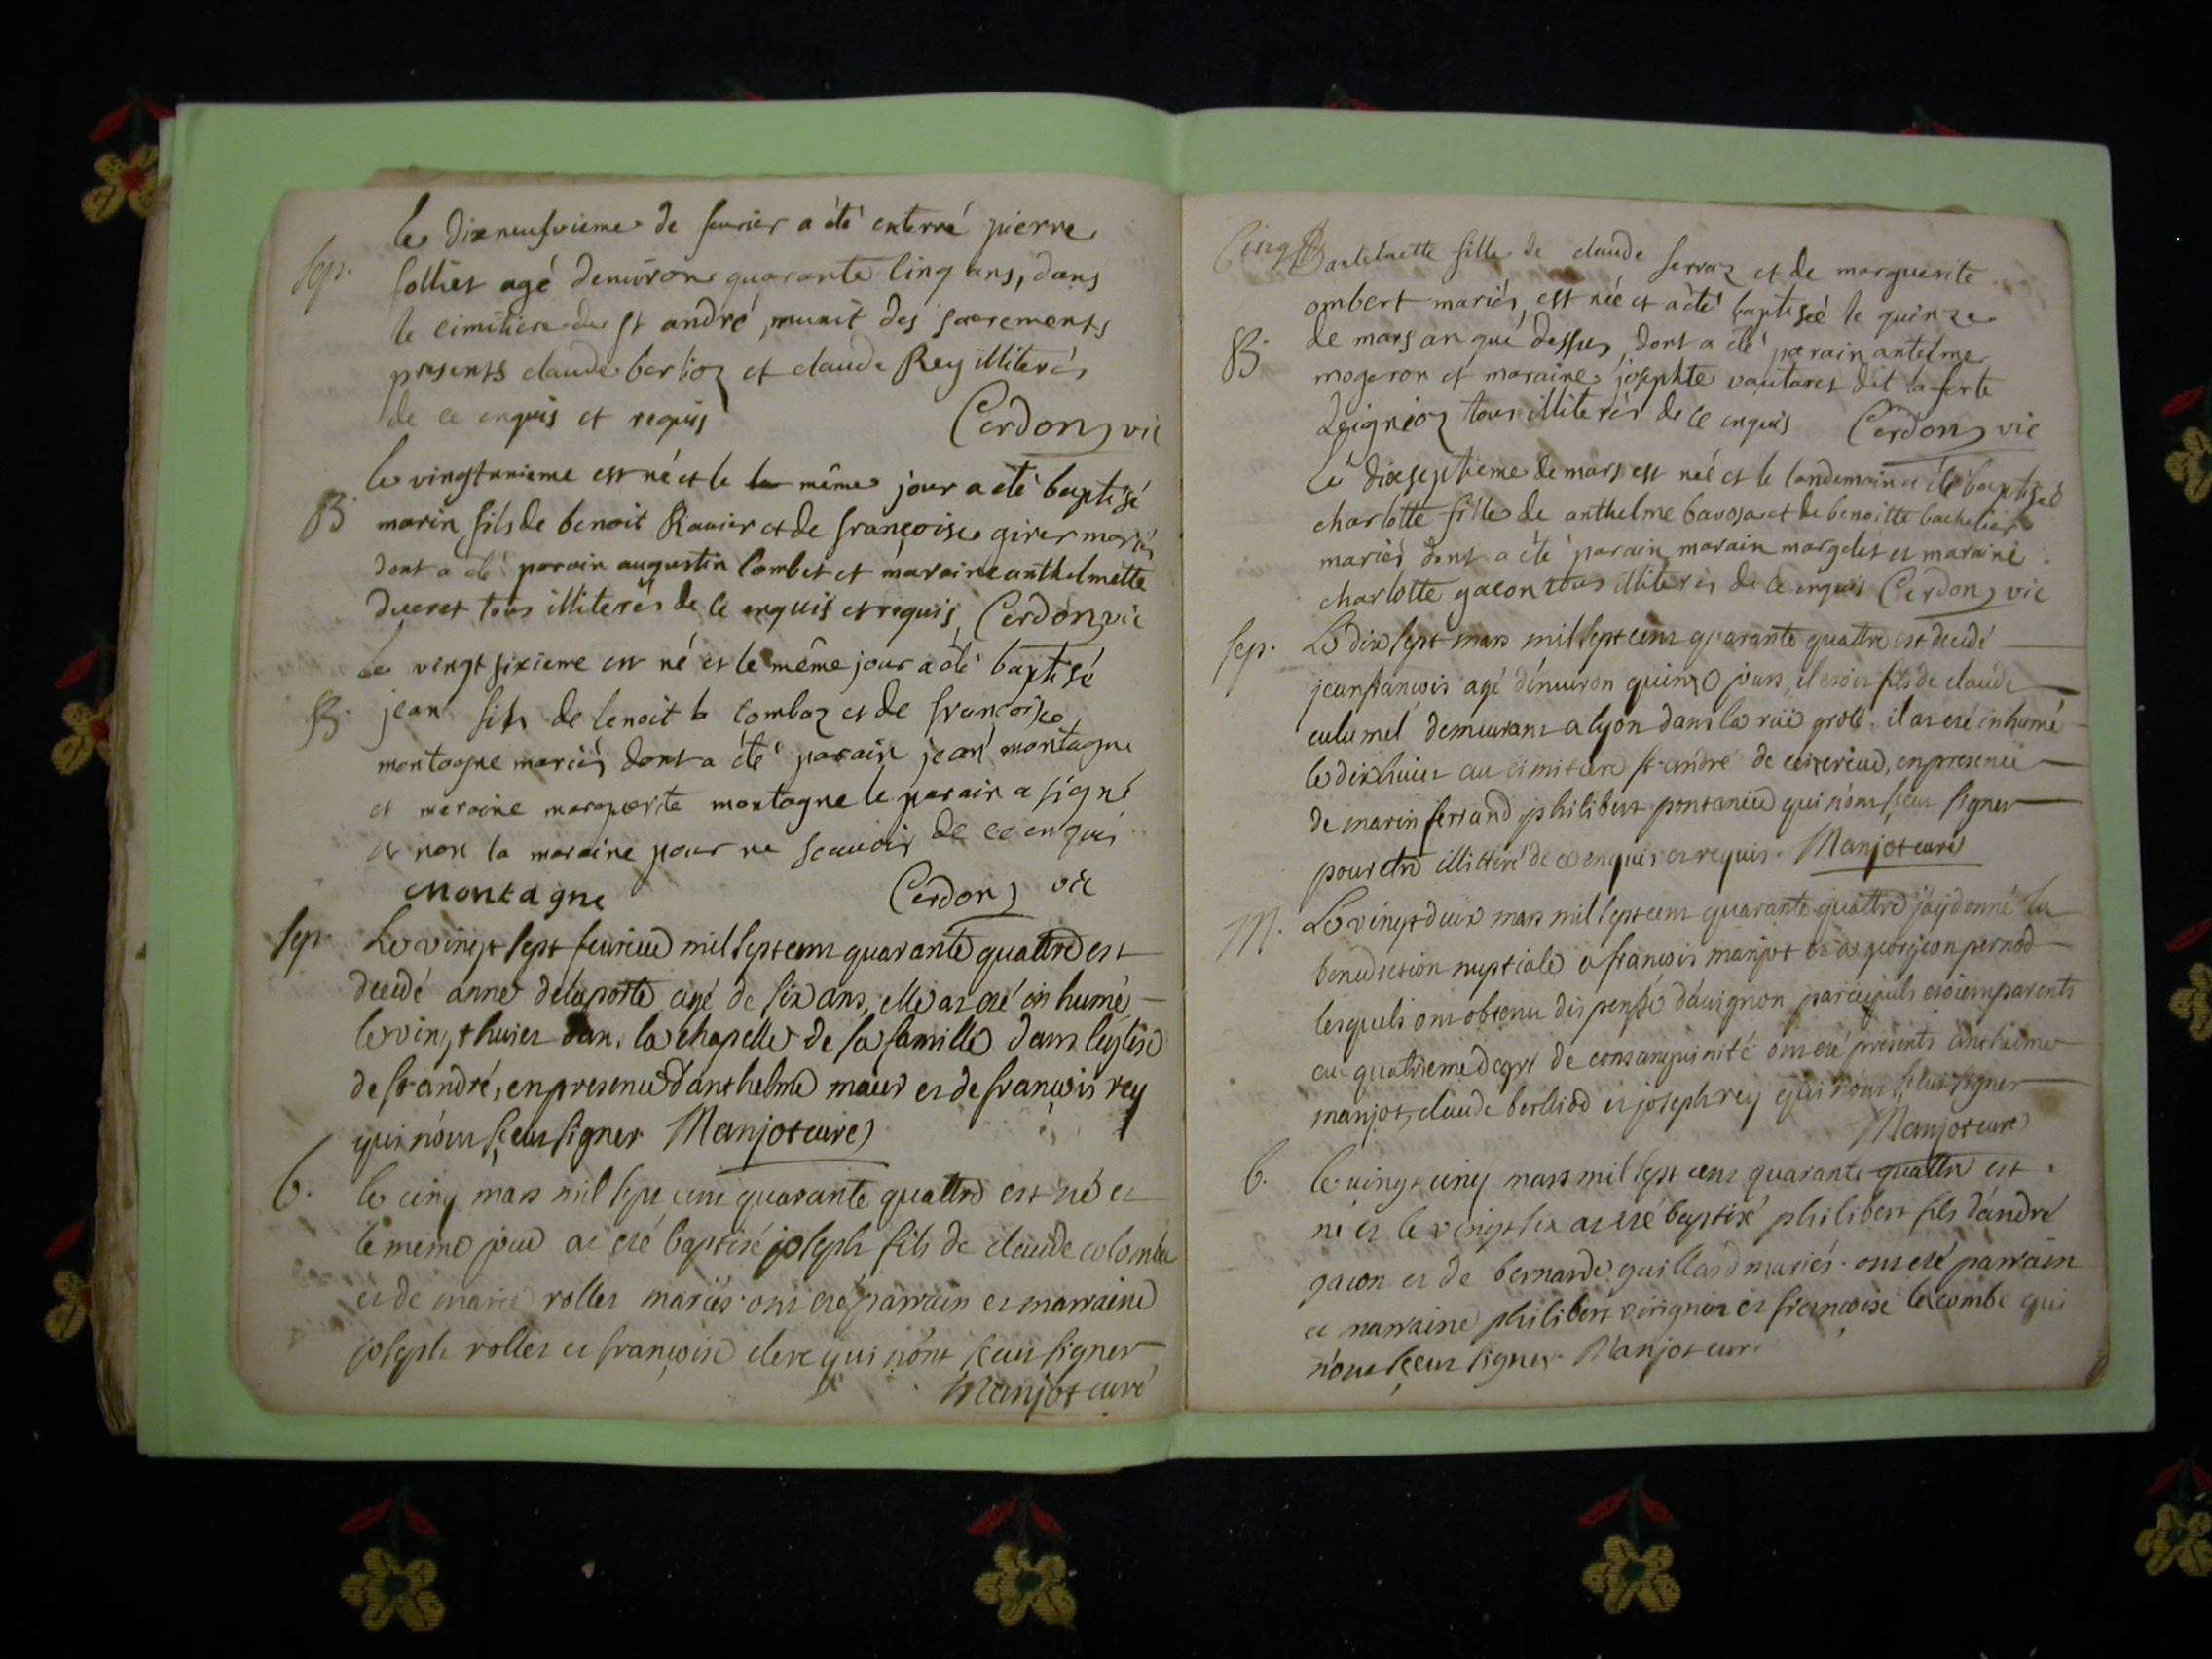 le dixneufvieme de fevrier a été enterré pierre
sep. folliet agé denviron quarante cinq ans, dans
le cimitiere de st andré, munit des sacrements
presents claude berlioz et claude Rey illiterés
de ce enquis et requis Cerdon vic
le vingtunieme est né et le même jour a eté baptisé
B. marin fils de benoit Ravier et de françoise girer mariés
dont a été parain augustin Combet et maraine anthelmette
ducret tous illiterés de ce enquis et requis, Cerdon vic
le vingt sixieme est né et le même jour a été baptisé
B. jean fils de benoit la combaz et de françoise
montagne mariés dont a été parain jean montagne
et maraine marguerite montagne le parain a signé
et non la maraine pour ne scavoir de ce enquis
Montagne Cerdon vic
Sep. Le vingt sept feurier mil sept cent quarante quattre est
decedé anne delaporte agé de six ans, elle at eté inhumé
le vingt huiet dans la chapelle de sa famille dans leglise
de st andré, en presence d'anthelme et de francois rey
qui n'ont sceu signer Manjot curé
b. le cinq mars mil sept cent quarante quattre est né et
le meme jour at eté baptisé joseph fils de claude colomb
et de marie rollet mariés. ont eté parrain et marraine
joseph rollet et françoise clerc qui n'ont sceu signer
Manjot curé
Cinq B antelmette fille de claude serraz et de marguerite
ombert mariés, est née et a été baptisée le quinze
B. de mars an que dessus, dont a été parain antelme
mogeron et maraine josephte vautaret dit la forte
tous illiterés de ce enquis Cerdon vic
Le dixseptieme de mars est née et le landemain a été baptisée
charlotte fille de anthelme bavosat et de benoitte bachelier
mariés dont a été parain marain margelet et maraine
charlotte gacon tous illiterés de ce enquis Cerdon vic
sep. Le dix sept mars mil sept cent quarante quattre est decedé
jean francois agé denviron quinze jours, il etoit fils de claude
demeurant a lyon dans la rüe grolé. il at eté inhumé
le dix huiet au cimitiere st andré de ceizerieu, en presence
de marin ferrand, philibert pontanier qui n'ont sceu signer
pour etre illitteré de ce enquis et requis. Manjot curé
M. Le vingt deux mars mil sept cent quarante quattre j'ay donné la
benediction nuptiale a francois manjot et a pernod
lesquels ont obtenu dispense d'avignon parcequils etoient parents
au quatrieme degré de consanguinité ont eté presents anthelme
manjot, claude berliod et joseph rey qui n'ont sceu signer
Manjot curé
b. le vingt cinq mars mil sept cent quarante quattre est
né et le vingt six at eté baptisé philibert fils d'andré
gacon et de bernarde guillard mariés. ont eté parrain
et marraine philibert virignin et francoise lacombe qui
n'ont sceu signer. Manjot curé